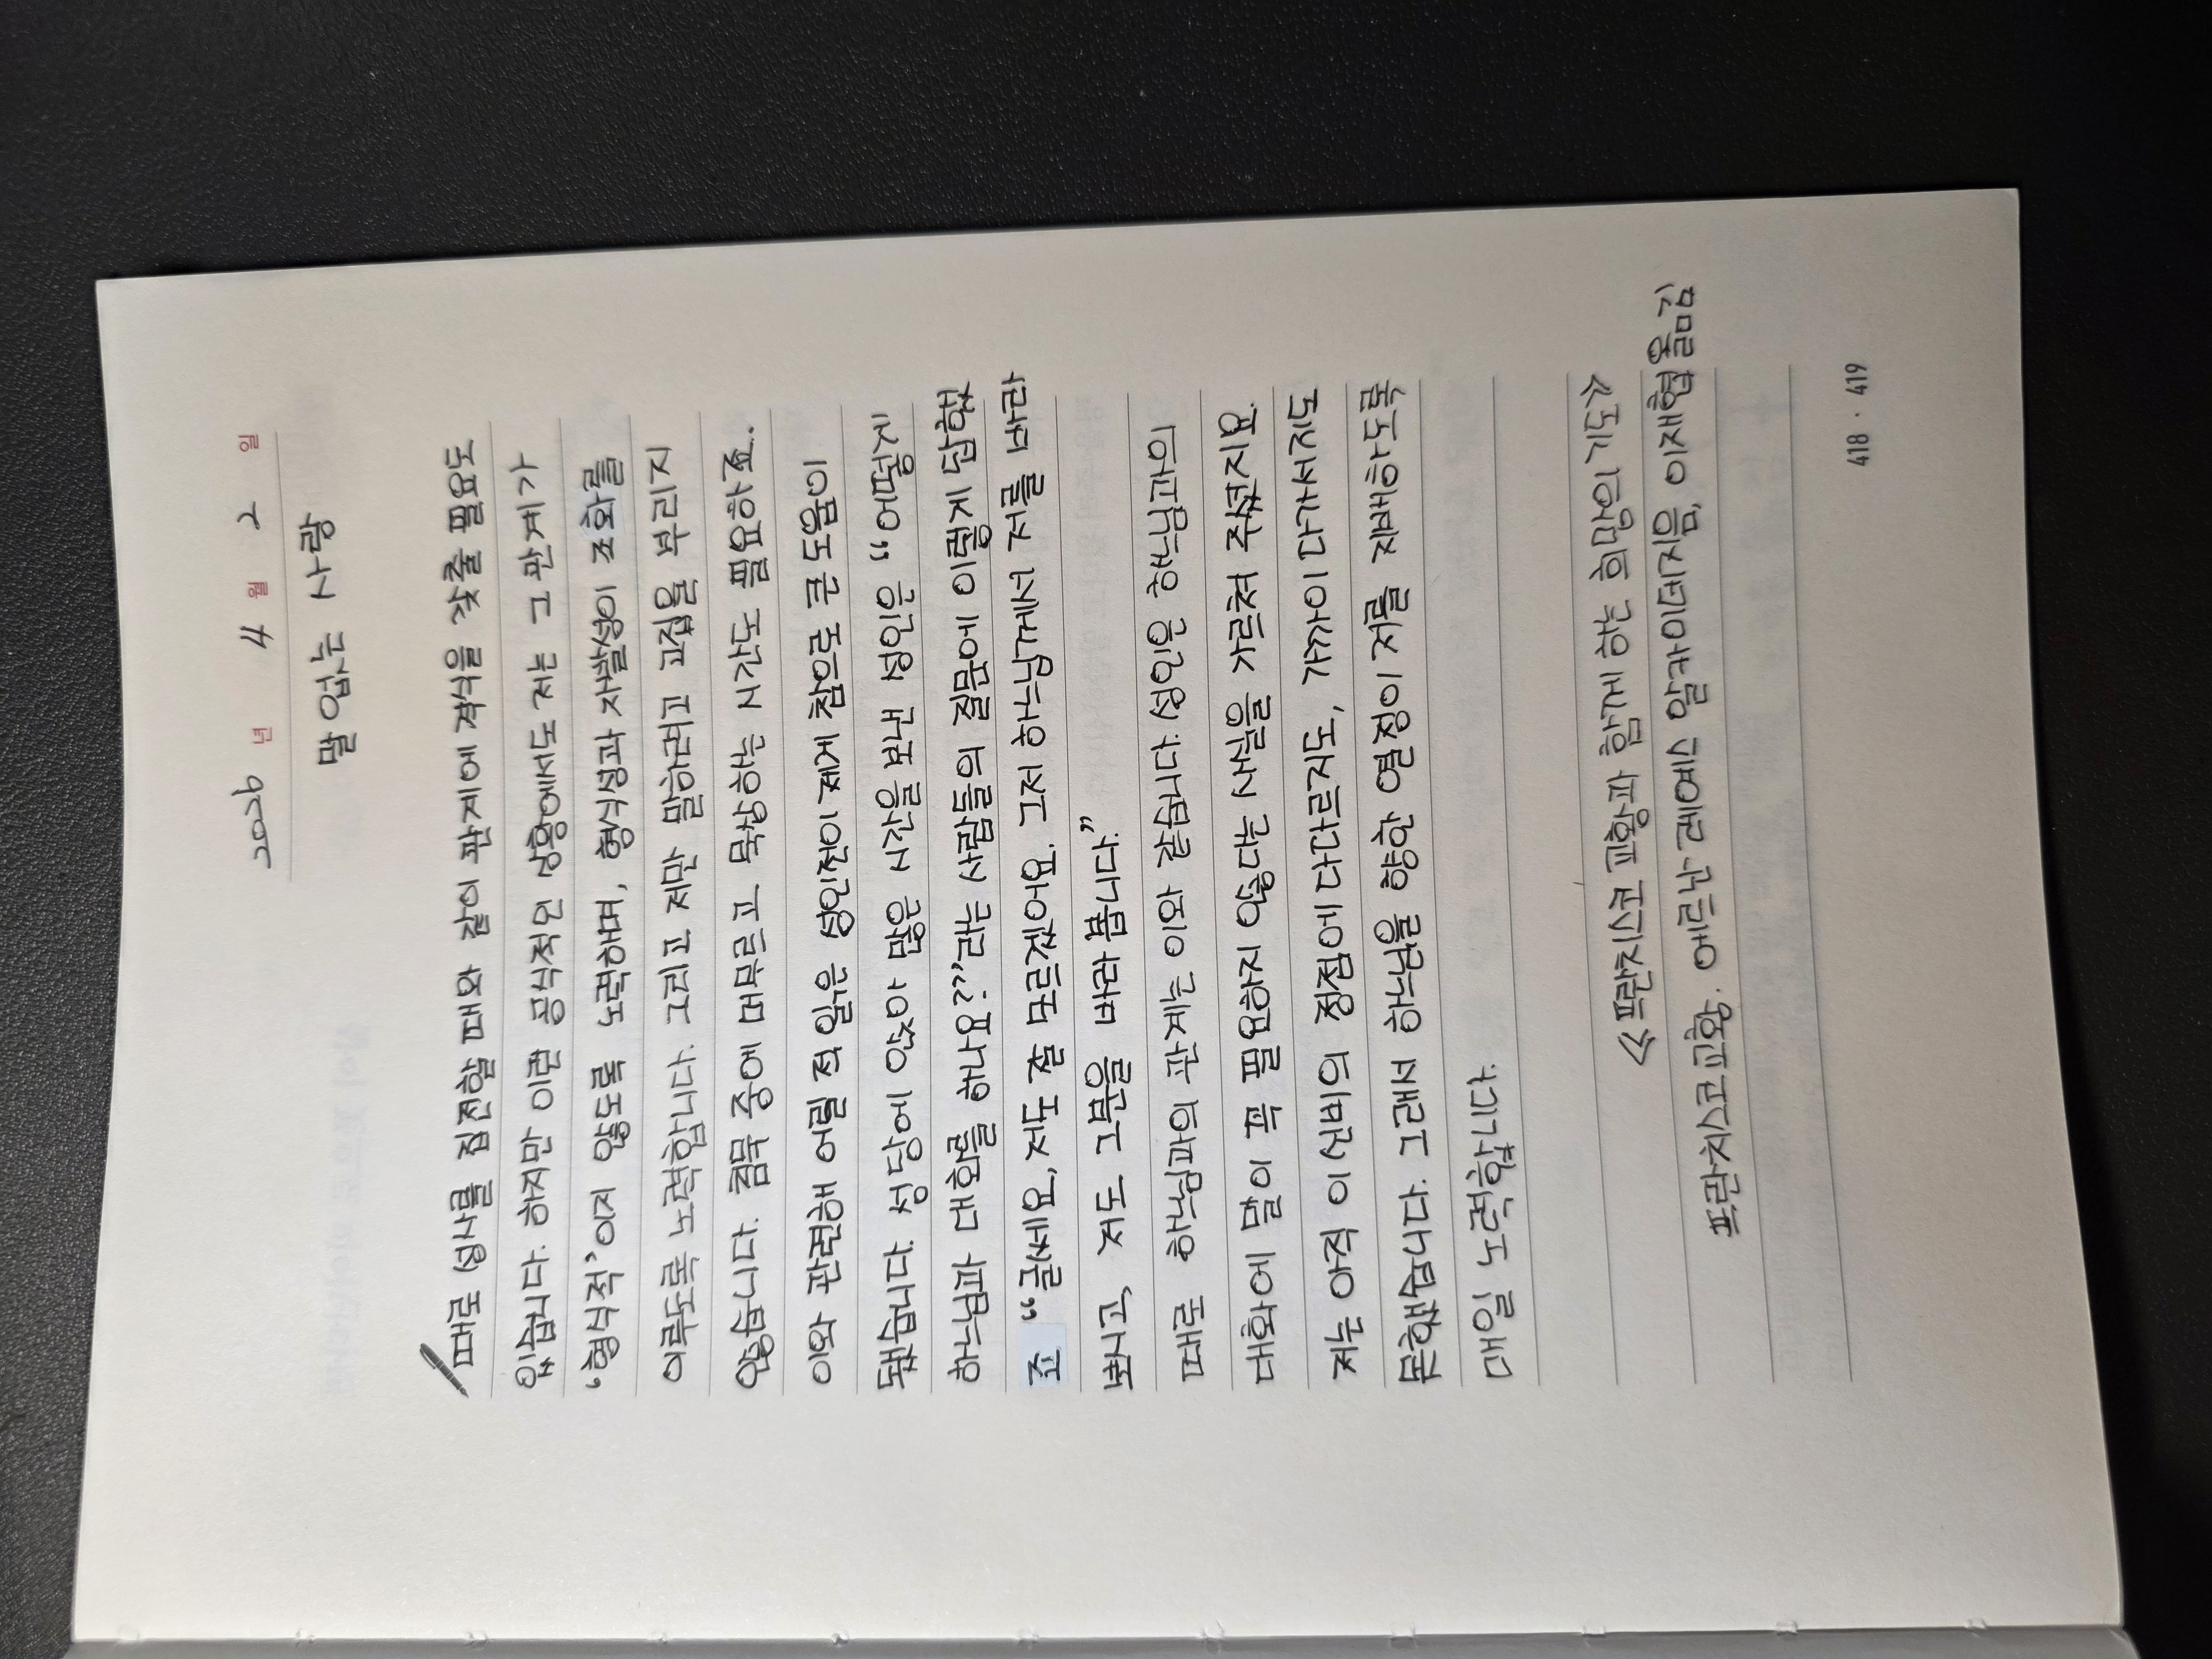 2026 년 4 월 2 일
말 없는 사랑
때로 성사를 집전할 때와 같이 관계에 격식을 갖출 필요도
있습니다. 하지만 이런 공식적인 상황에서도 저는 그 관계가
‘형식적’이지 않도록 노력하며, 형식성과 자발성이 조화를
이루도록 노력합니다. 그리고 저만 말하려고 고집을 부리지
않습니다. 침묵 중에 머무르고 묵상하는 시간도 필요하죠.
이와 관련해 어릴 적 읽은 성인전이 제게 참으로 큰 도움이
됐습니다. 성당에 앉아 많은 시간을 보낸 성인은 “어떻게
하느님과 대화를 하나요?”라는 사람들의 질문에 이렇게 답했
죠 “글쎄요, 저도 잘 모르겠어요. 그저 하느님께서 저를 바라
봐시고, 저도 그분을 바라봅니다.”
때로 하느님과의 관계는 이와 같습니다. 성인은 하느님과의
대화에 말이 꼭 필요하지 않다는 사실을 가르쳐 주셨지요.
저는 아직 이 신비의 정점에 다다르지도, 가까이 다가서지도
못했습니다. 그래서 하느님을 향한 열정이 저를 지배하도록
매일 노력합니다.
≪프란치스코 교황과 함께 하는 희망의 기도≫
프란치스코 교황· 에르난 레예스 알카이데지음, 이재협옮김
418 · 419